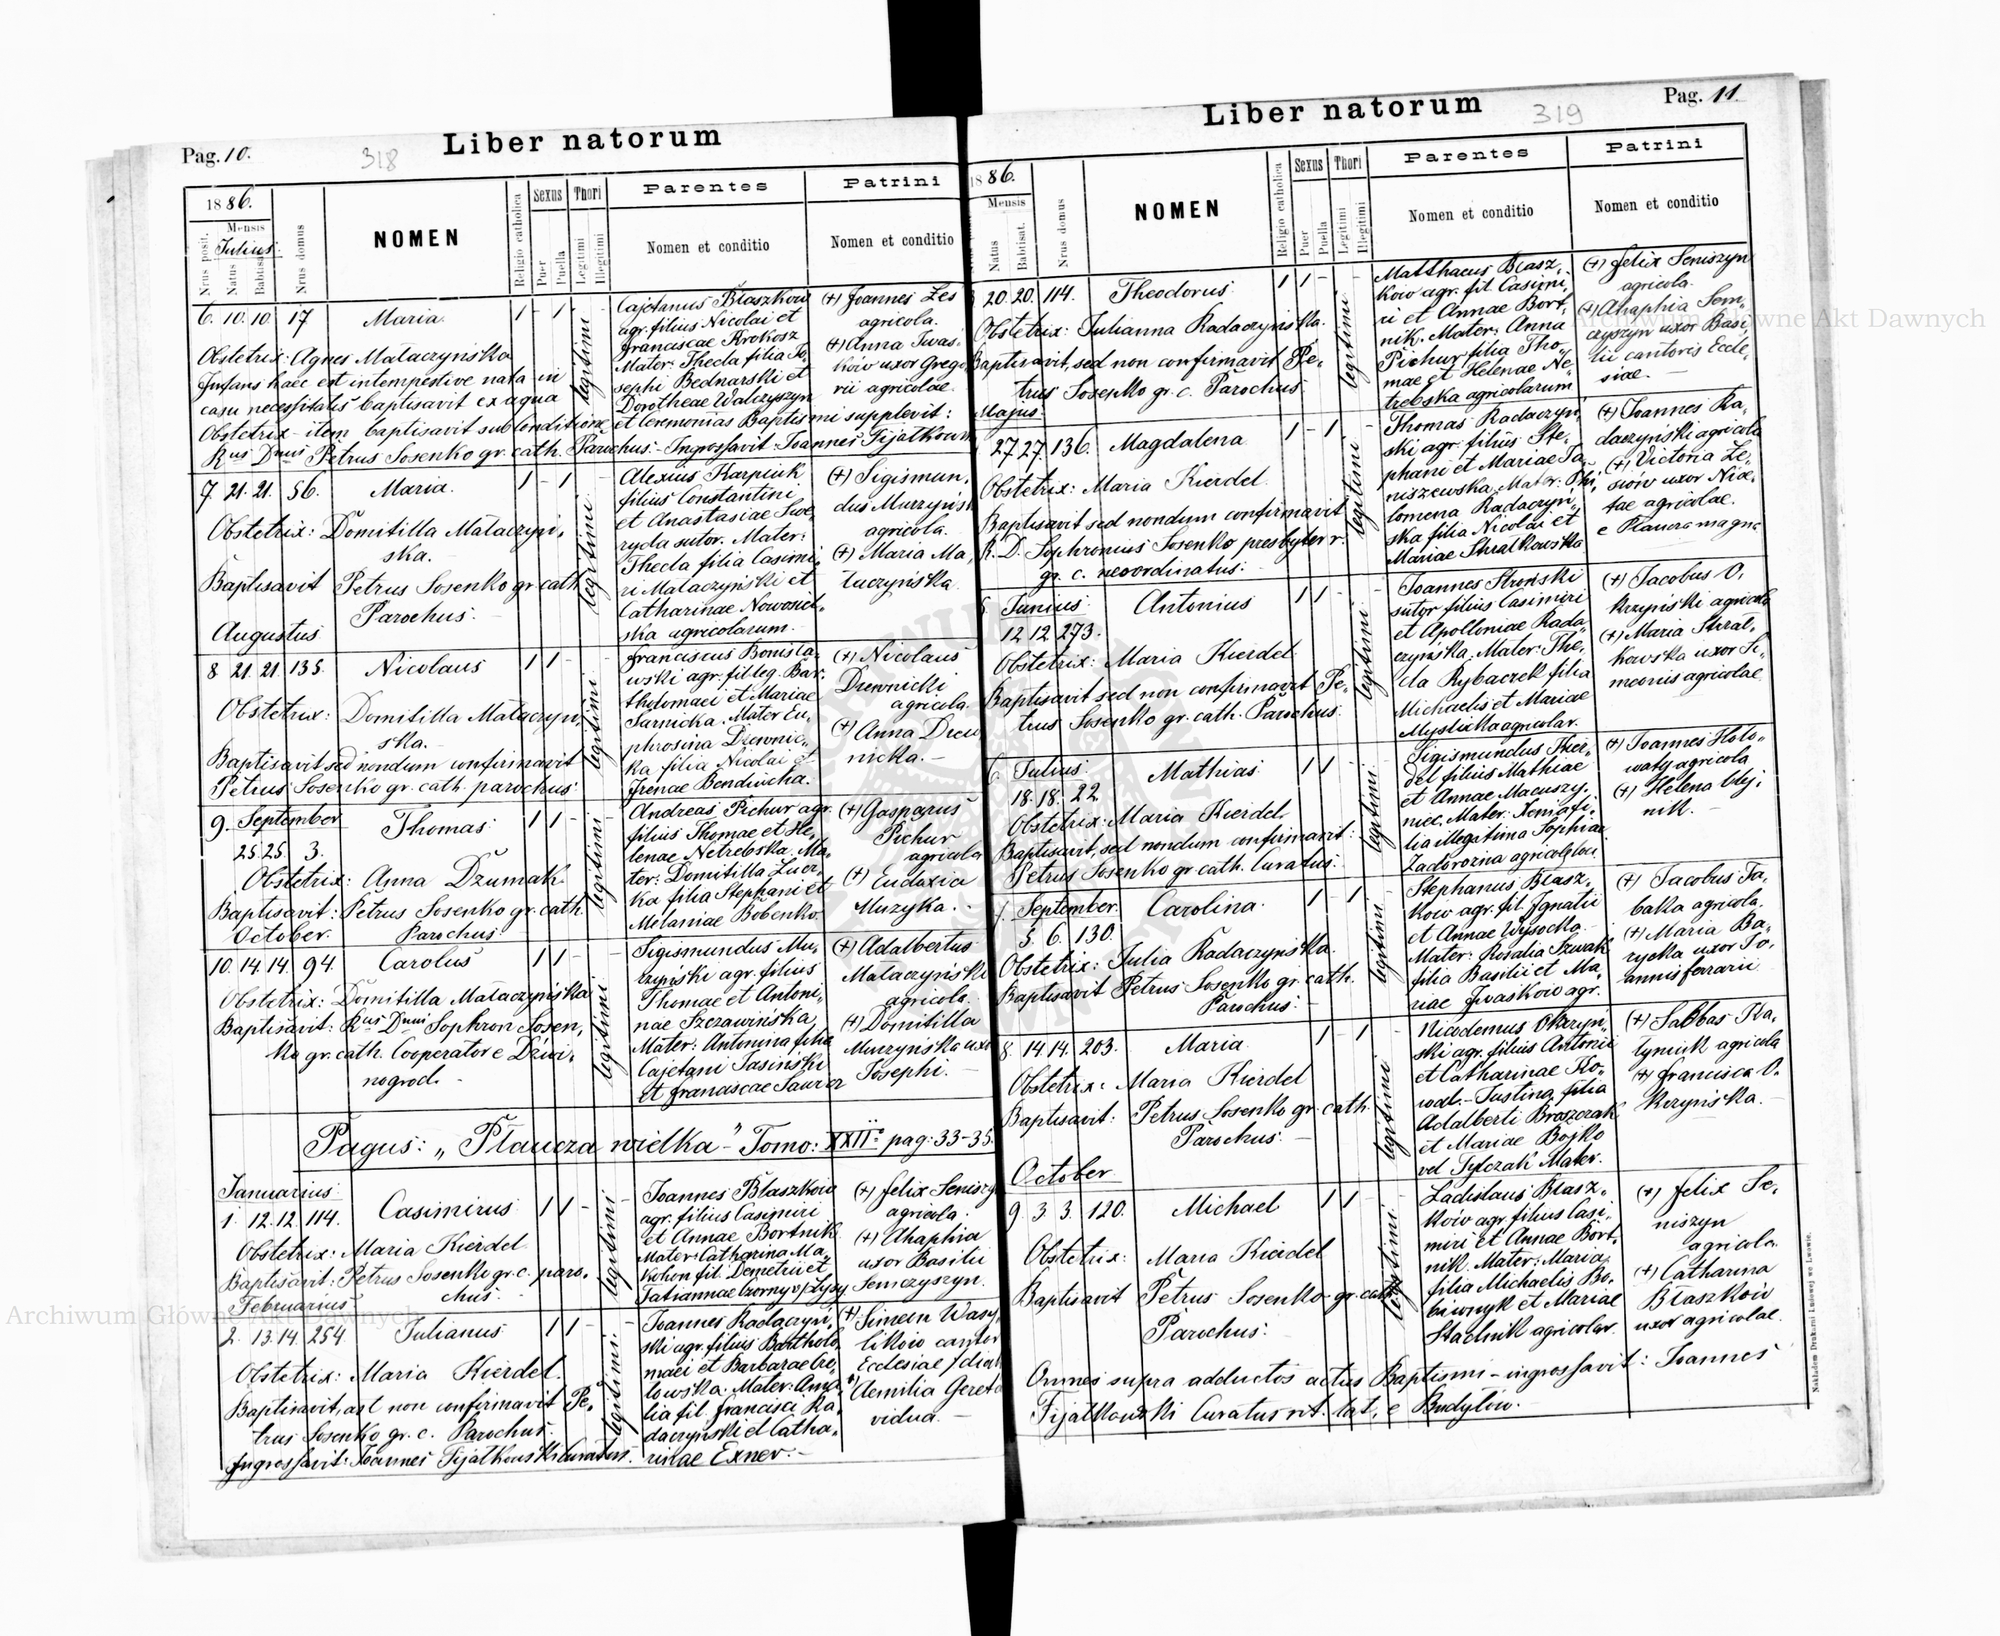 Pag. 10.
318
Liber natorum
1886.
Mensis
Julius
Nrus posit.
Natus
Babtisat.
Nrus domus
NOMEN
Religio catholica
Sexus
Puer
Puella
Thori
Legitimi
Illegitimi
Parentes
Nomen et conditio
Patrini
Nomen et conditio
6. 10. 10. 17 Maria 1 - 1 -
legitimi
Obstetrix: Agnes Mataczyńska
Infans haec est intempestive nata in
casu necessitatis baptisavit ex aqua
Obstetrix - item baptisavit sub conditione et ceremonias Baptismi supplevit:
Rus Dnus Petrus Sosenko gr. cath. Parochus. - Ingrossavit Joannes Fijałkowski
Cajetanus Błaszków
agr. filius Nicolai et
Franciscae Krokosz
Mater: Thecla filia Jo„
sephi Bednarski et
Dorotheae Walczyszyn
(+) Joannes Les
agricola.
(+) Anna Iwas„
ków uxor Grego„
rii agricolae.
7. 21. 21. 56. Maria. 1 - 1 -
legitimi
Obstetrix: Domitilla Mataczyń„
ska.
Baptisavit Petrus Sosenko gr. cath.
Parochus.
Alexius Karpiuk
filius Constantini
et Anastasiae Swe„
ryda sutor. Mater:
Thecla filia Casimi„
ri Mataczyński et
Catharinae Nowosiel„
ska agricolarum.
(+) Sigismun„
dus Murzyńsk
agricola.
(+) Maria Ma„
tuczyńska
Augustus
8. 21. 21. 135. Nicolaus 1 1 - -
legitimi
Obstetrix: Domitilla Mataczyń„
ska.
Baptisavit sed nondum confirmavit
Petrus Sosenko gr. cath. parochus.
Franciscus Bonisła„
wski agr. fil. leg. Bar„
tholomaei et Mariae
Sarnicka. Mater Eu„
phrosina Drewnic„
ka filia Nicolai et
Irenae Bendwicha.
(+) Nicolaus
Drewnicki
agricola.
(+) Anna Drew
nicka.
9. September Thomas 1 1 - -
25. 25. 3.
legitimi
Obstetrix: Anna Dżumak
Baptisavit: Petrus Sosenko gr. cath.
Parochus
Andreas Pichur agr.
filius Thomae et He„
lenae Netrebska. Ma„
ter: Domitilla Lucz„
ka filia Stephani et
Melaniae Bobenko.
(+) Gasparus
Pichur
agricola
(+) Eudoxia
Muzyka.
October.
10. 14. 14. 94. Carolus 1 1 - -
legitimi
Obstetrix: Domitilla Mataczyńska
Baptisavit: Rus Dnus Sophron Sosen„
ko gr. cath. Cooperator e Dźwi„
nogrod.
Sigismundus Mu„
rzyński agr. filius
Thomae et Antoni„
nae Szczawińska
Mater: Antonina filia
Cajetani Jasiński
et Franciscae
(+) Adalbertus
Mataczyński
agricola.
(+) Domitilla
Murzyńska ux
Josephi.
Pagus: „Płaucza wielka" Tomo: XXII° pag: 33-35.
Januarius
1. 12. 12. 114. Casimirus 1 1 - -
legitimi
Obstetrix: Maria Kierdel
Baptisavit: Petrus Sosenko gr. c. paro„
chus.
Joannes Błaszków
agr. filius Casimiri
et Annae Bortnik.
Mater: Catharina Ma„
kohon fil. Demetrii et
Tatiannae Czorny v/ Łysy
(+) Felix Seniszyn
agricola.
(+) Ahaphia
uxor Basilii
Semczyszyn.
Februarius
2. 13. 14. 254 Julianus 1 1 - -
legitimi
Obstetrix: Maria Kierdel.
Baptisavit, ast non confirmavit Pe„
trus Sosenko gr. c. Parochus.
Ingrossavit: Joannes Fijałkowski curatus.
Joannes Radaczyń„
ski agr. filius Bartholo„
maei et Barbarae Cro„
towska. Mater: Ama„
lia fil. Francisci Ra„
daczyński et Catha„
rinae Exner.
(+) Simeon Wasy„
likow cantor
Ecclesiae
Aemilia Gereta
vidua.
Pag. 11.
319
Liber natorum
1886.
Mensis
Natus
Babtisat.
Nrus domus
NOMEN
Religio catholica
Sexus
Puer
Puella
Thori
Legitimi
Illegitimi
Parentes
Nomen et conditio
Patrini
Nomen et conditio
20. 20. 114. Theodorus 1 1 - -
legitimi
Obstetrix: Julianna Radaczyńska.
Baptisavit, sed non confirmavit Pe„
trus Sosenko gr. c. Parochus
Matthaeus Błasz„
ków agr. fil. Casimi„
ri et Annae Bort„
nik. Mater: Anna
Pichur filia Tho„
mae et Helenae Ne„
trebska agricolarum
(+) Felix Seniszyn
agricola.
(+) Ahaphia Sem„
czyszyn uxor Basi„
lii cantoris Eccle„
siae.
Majus.
27 27. 136. Magdalena 1 - 1 -
legitimi
Obstetrix: Maria Kierdel
Baptisavit sed nondum confirmavit
R. D. Sophronius Sosenko presbyter r.
gr. c. neoordinatus.
Thomas Radaczyń„
ski agr. filius Ste„
phani et Mariae Ja„
niszewska. Mater: Phi„
lomena Radaczyń„
ska filia Nicolai et
Mariae Stralkowska
(+) Joannes Ra„
daczyński agricola
(+) Victoria Le„
siów uxor Nice„
tae agricolae.
e Płaucza magna
Junius Antonius 1 1 - -
12 12 273.
legitimi
Obstetrix: Maria Kierdel
Baptisavit sed non confirmavit Pe„
trus Sosenko gr. cath. Parochus.
Joannes Stroński
sutor filius Casimiri
et Apolloniae Rada„
czyńska. Mater: The„
cla Rybaczek filia
Michaelis et Mariae
Myslicka agricolar.
(+) Jacobus O„
krzyński agricola
(+) Maria Stral„
kowska uxor Si„
meonis agricolae
6. Julius Mathias 1 1 - -
18. 18. 22
legitimi
Obstetrix: Maria Kierdel
Baptisavit, sed nondum confirmavit:
Petrus Sosenko gr. cath. Curatus.
Sigismundus Kier„
del filius Mathiae
et Annae Macuszy„
niec. Mater: Xenia fi„
lia illegitima Sophiae
Zadorozna
(+) Joannes Hoło„
waty agricola
(+) Helena Olij„
nik.
September Carolina. 1 - 1 -
5. 6. 130.
legitimi
Obstetrix: Julia Radaczyńska.
Baptisavit Petrus Sosenko gr. cath.
Parochus.
Stephanus Błasz„
ków agr. fil. Ignatii
et Annae Wysocka.
Mater: Rosalia Szwak
filia Basilii et Ma„
riae Iwasków agr.
(+) Jacobus Ja„
baka agricola.
(+) Maria Ba„
rycka uxor Jo„
annis ferrarii
8. 14 14. 203. Maria. 1 - 1 -
legitimi
Obstetrix: Maria Kierdel
Baptisavit: Petrus Sosenko gr. cath.
Parochus.
Nicodemus Okrzyń„
ski agr. filius Antonii
et Catharinae Ko„
wal. - Justina filia
Adalberti Braszczak
et Mariae Bojko
vel Tylczak Mater.
(+) Sabbas Ka„
tyniuk agricola
(+) Francisca O„
krzyńska.
October
9. 3. 3. 120. Michael 1 1 - -
legitimi
Obstetrix: Maria Kierdel
Baptisavit Petrus Sosenko gr. cath.
Parochus.
Ladislaus Błasz„
ków agr. filius Casi„
miri et Annae Bort„
nik. Mater: Maria
filia Michaelis Bo„
biwnyk et Mariae
Stachnik agricolar.
(+) Felix Se„
niszyn
agricola.
(+) Catharina
Błaszków
uxor agricolae.
Omnes supra adductos actus Baptismi - ingrossavit: Joannes
Fijałkowski Curatus rit. lat. e Budyłów.
Nakładem Drukarni Ludowej we Lwowie.
Archiwum Główne Akt Dawnych
Archiwum Główne Akt Dawnych